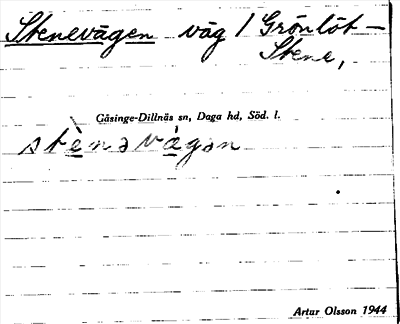 Stenevägen väg / Grönlöt -
Stene,
Gåsinge-Dillnäs sn, Daga hd, Söd. l.
stè̱nəvä̱̀gən
Artur Olsson 1944